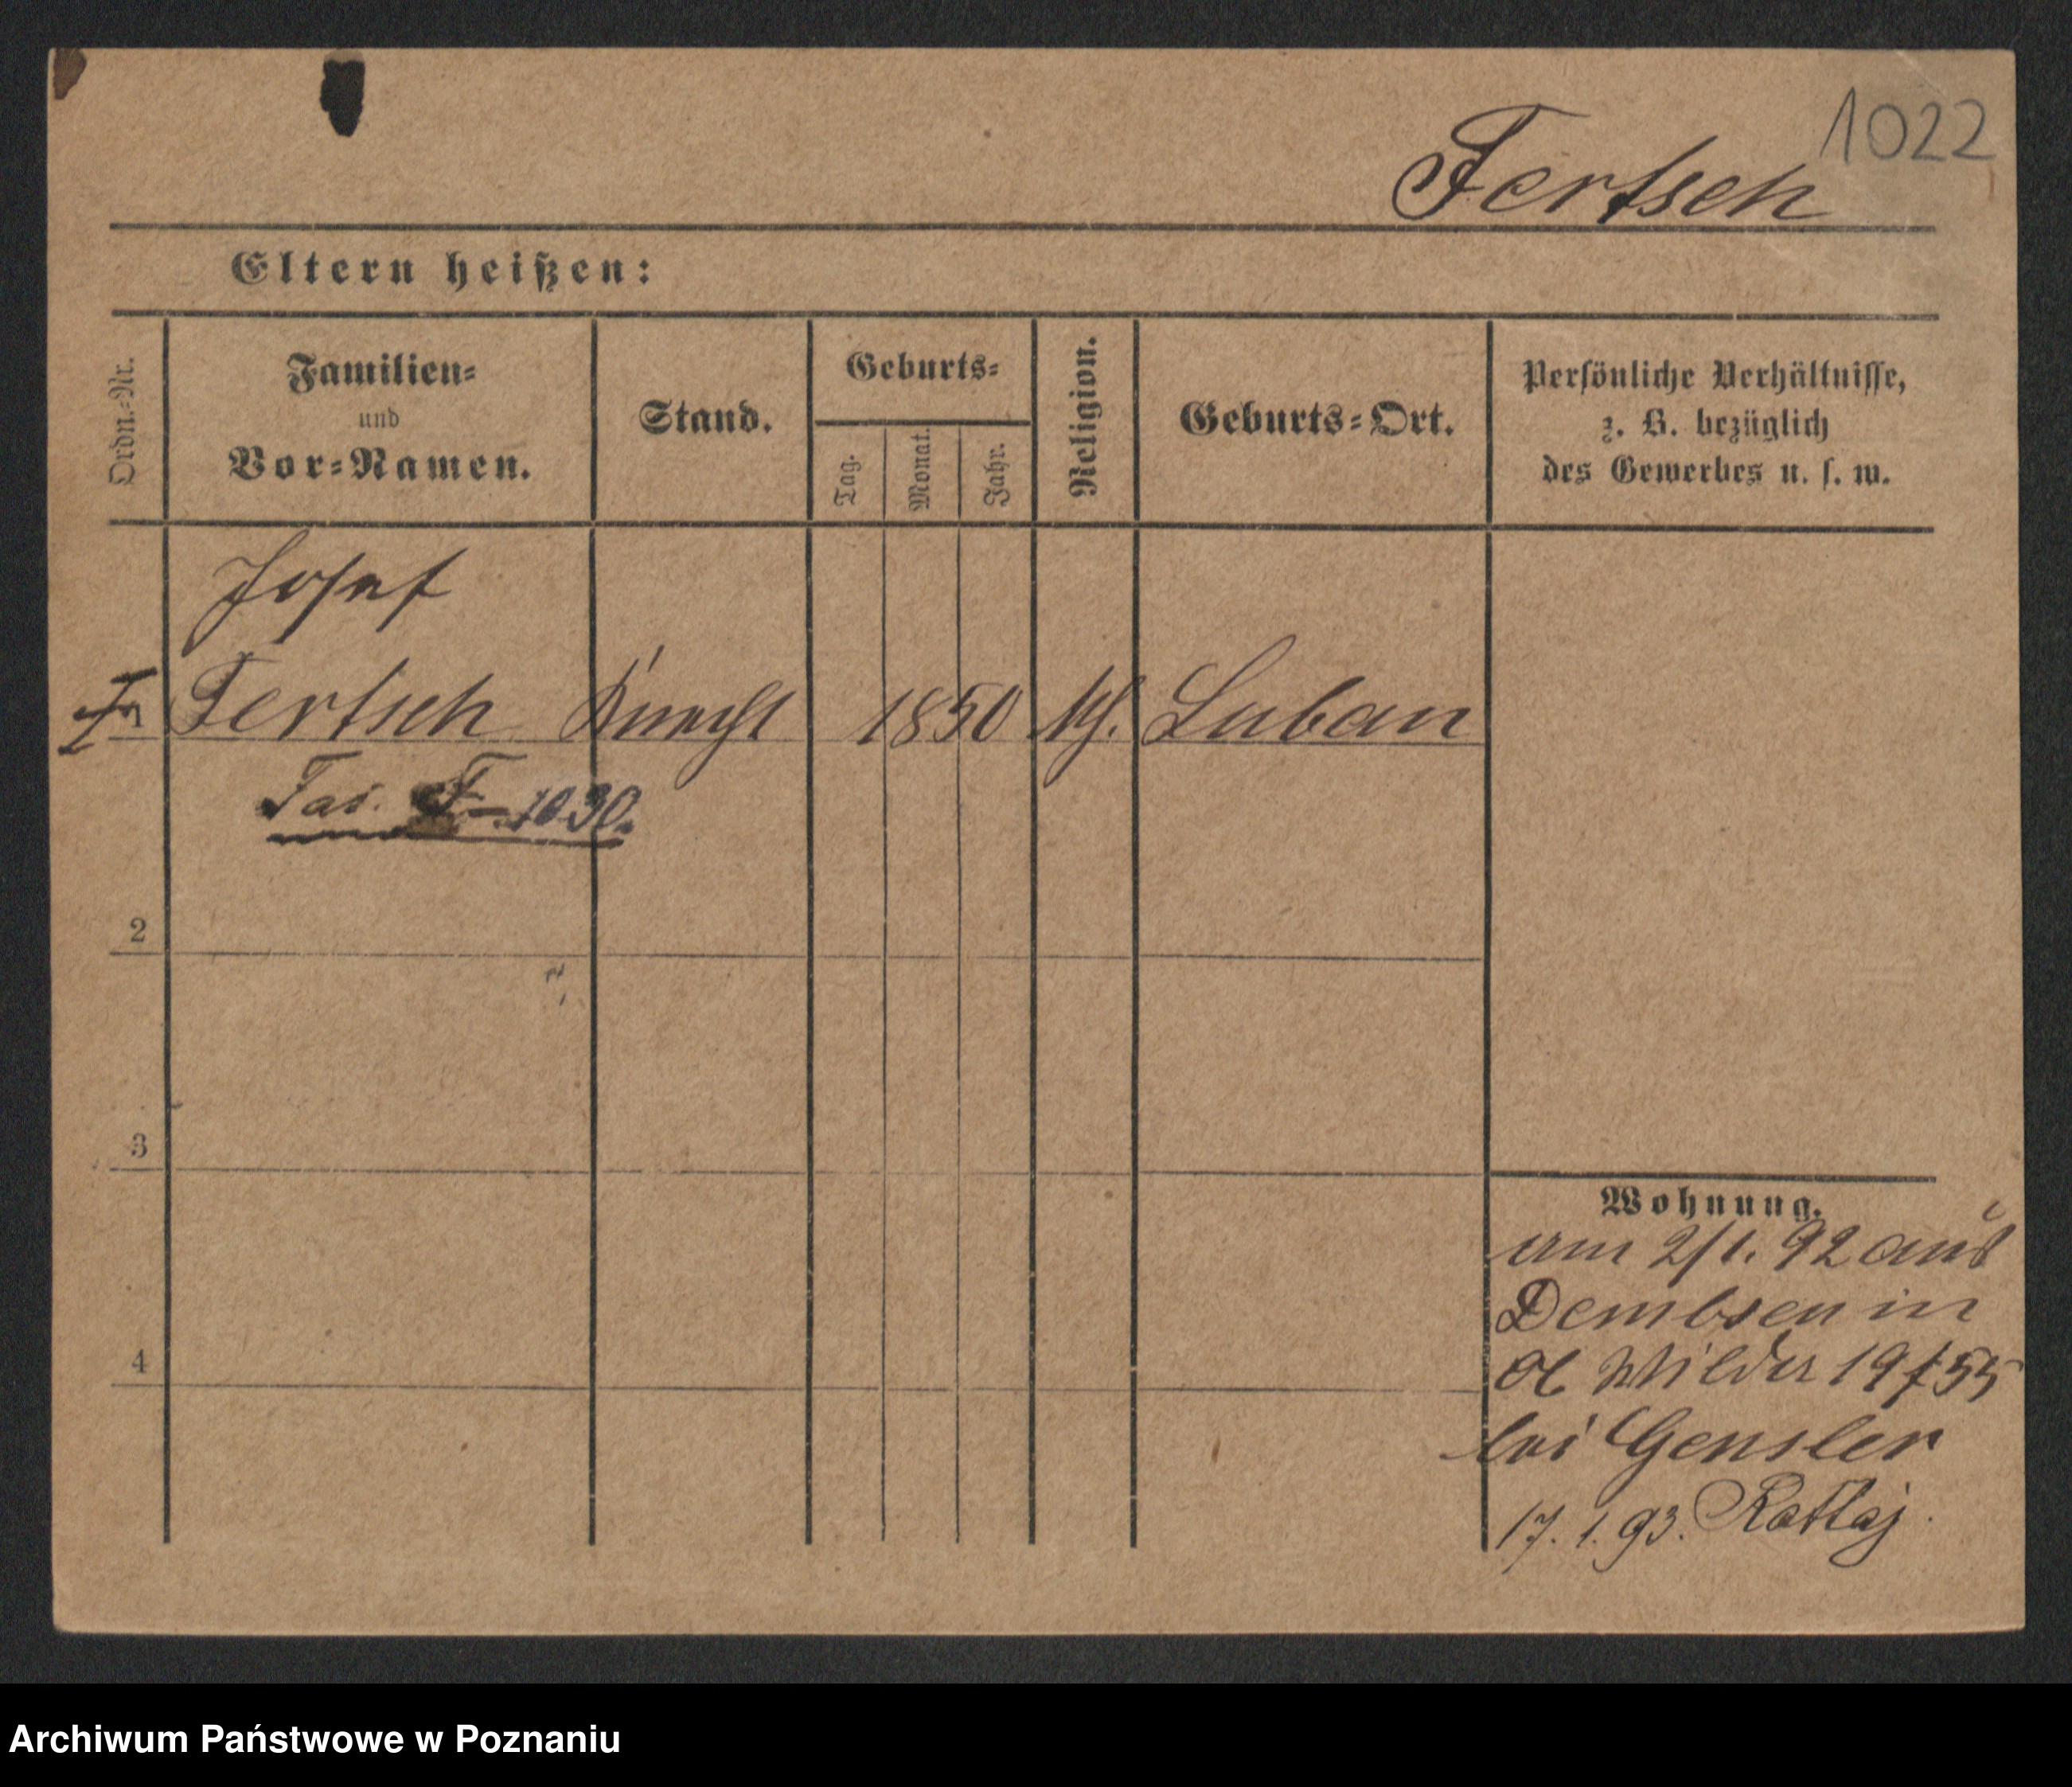 1022
Fertsch
Eltern heißen:
Ordn.-Nr.
Familien-
und
Vor-Namen.
Stand.
Geburts-
Tag.
Monat.
Jahr.
Religion.
Geburts-Ort.
Persönliche Verhältnisse,
z. B. bezüglich
des Gewerbes u. s. w.
Josef
Fertsch Knecht 1850 kth. Luban
F-1030.
2
3
4
Wohnung.
am 2/1. 92 aus
Dembsen in
Wilda 19/55
bei Gensler
17. 1. 93. Rattaj.
Archiwum Państwowe w Poznaniu